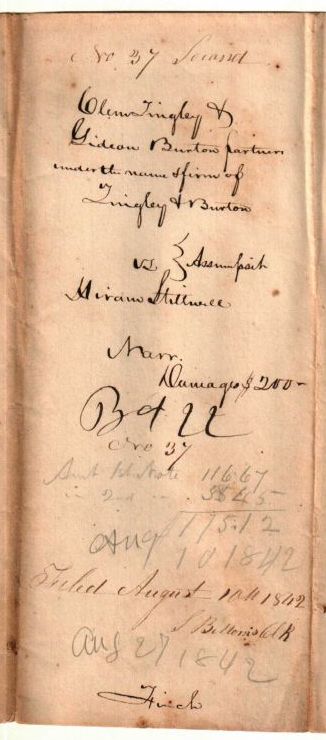 No 37 Second
Clem Tingley &
Gideon Burton partners
under the name & firm of
Tingley & Burton
vs } Assumpsit
Hiram Stillwell
Narr.
Damages $200-
B 4 22
No 37
Amt 1st Note 116.67
in 2nd in 58.45
175.12
Aug 10 1842
Filed August 10th 1842
Clk
Aug 27 1842
Finch